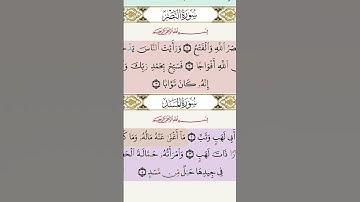 سُورَةُ النَّصْرِ
بِسْمِ اللَّهِ الرَّحْمَٰنِ الرَّحِيمِ
صْرُ اللَّهِ وَالْفَتْحُ ١ وَرَأَيْتَ النَّاسَ يَدْ
اللَّهِ أَفْوَاجًا ٢ فَسَبِّحْ بِحَمْدِ رَبِّكَ وَ
إِنَّهُ كَانَ تَوَّابًا ٣
سُورَةُ الْمَسَدِ
بِسْمِ اللَّهِ الرَّحْمَٰنِ الرَّحِيمِ
أَبِي لَهَبٍ وَتَبَّ ١ مَا أَغْنَىٰ عَنْهُ مَالُهُ وَمَا كَ
ارًا ذَاتَ لَهَبٍ ٣ وَامْرَأَتُهُ حَمَّالَةَ الْحَطَ
فِي جِيدِهَا حَبْلٌ مِن مَّسَدٍ ٥